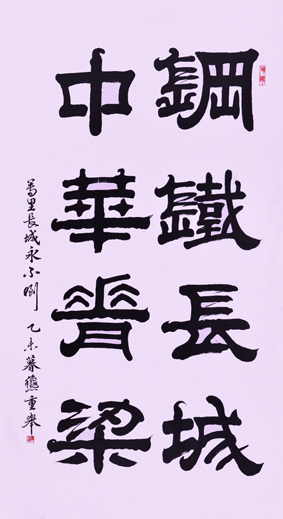 鋼鐵長城
中華脊梁
萬里長城永不倒 乙未暮 重舉